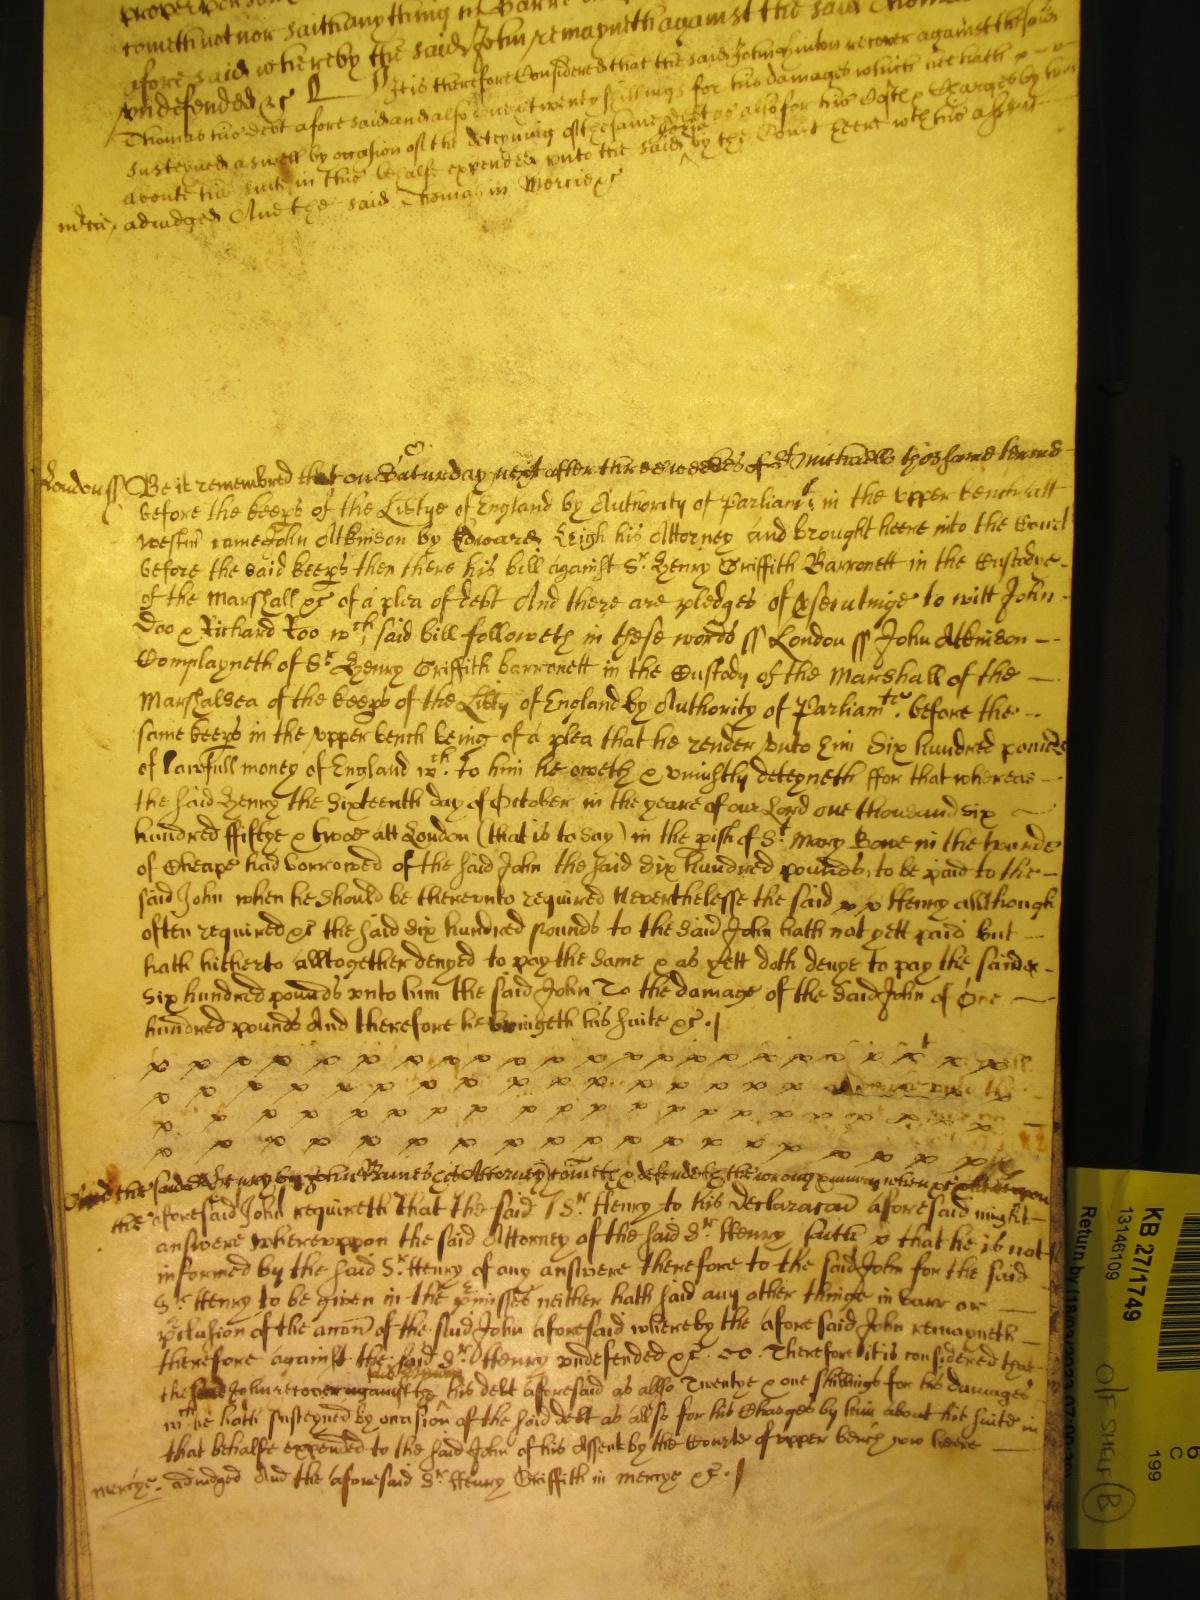 proper person
cometh not nor saith any thing in Barre
aforesaid whereby the said John remayneth against the said Thomas
vndefended &c It is therefore Considered that the said John Hinton recover against the said
Thomas his debt aforesaid and also one & twenty shillings for his damages which he hath
susteyned aswell by occasion of the deteyning of the same debt as also for his Costs & Charges by him
aboute his suite in this behalfe expended vnto the said John by the Court heere wth his assent
m'cie adiudged And the said Thomas in Mercie &c
London ss Be it remembred that on Saturday next after three weekes of St Michaell this same terme
before the keeps of the Libtye of England by Authority of Parliamt in the vpper bench att
Westm came John Atkinson by Edward Leigh his Attorney and brought heere into the Court
before the said keeps then there his bill against Sr Henry Griffith Barronett in the Custodye
of the Marshall &c of a plea of debt And there are pledges of to witt John
Doo & Richard Roo wch said bill followeth in these words ss London ss John Atkinson
Complayneth of Sr Henry Griffith barronett in the Custody of the Marshall of the
Marshalsea of the keeps of the Libty of England by Authority of Parliamte before the
same keeps in the vpper bench being of a plea that he render vnto him Six hundred pounds
of lawfull money of England wch to him he oweth & vniustly deteyneth ffor that whereas
the said Henry the Sixteenth day of October in the yeare of our Lord one thousand six
hundred ffiftye & twoe att London (that is to say) in the pish of St Mary Bowe in the warde
of Cheape had borrowed of the said John the said six hundred pounds, to be paid to the
said John when he should be therevnto required Neverthelesse the said Henry allthough
often required &c the said six hundred pounds to the said John hath not yett paid but
hath hitherto alltogether denyed to pay the same & as yett doth denye to pay the said
Six hundred pounds vnto him the said John To the damage of the said John of One
hundred pounds And therefore he bringeth his suite &c
And the said Sr Henry by his Attorney cometh & defendeth the wrong & iniury when &c
the aforesaid John requireth that the said Sr Henry to his declaracon aforesaid might
answere wherevppon the said Attorney of the said Sr Henry saith that he is not
informed by the said Sr Henry of any answere therefore to the said John for the said
Sr Henry to be given in the pmisses neither hath said any other thinge in barr or
pclusion of the accon of the said John aforesaid whereby the aforesaid John remayneth
therefore against the said Sr Henry vndefended &c Therefore it is considered that
the said John recover against the his debt aforesaid as allso Twentye & one shillings for his damages
wch he hath susteyned by occasion of the said debt as allso for his Charges by him about his suite in
that behalfe expended to the said John of his Assent by the Courte of vpper bench now heere
mercye adiudged And the aforesaid Sr Henry Griffith in mercye &c
KB 27/1749
13146109
Return by (18/03/2023 07:00:00)
6
C
199
O/F SHELF B